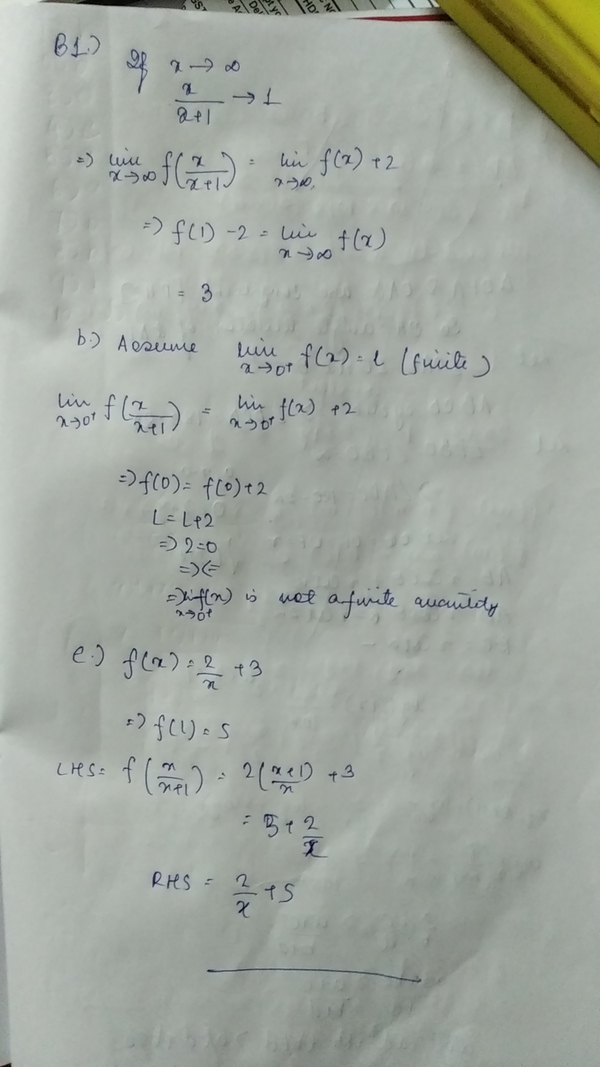 B1.) If x → ∞
x/(x+1) → 1
=> lim x→∞ f(x/(x+1)) = lim x→∞ f(x) + 2
=> f(1) - 2 = lim x→∞ f(x)
= 3
b.) Assume lim x→0+ f(x) = L (finite)
lim x→0+ f(x/(x+1)) = lim x→0+ f(x) + 2
=> f(0) = f(0) + 2
L = L+2
=> 2=0
=><=
=> lim x→0+ f(x) is not a finite quantity
c.) f(x) = 2/x + 3
=> f(1) = 5
LHS = f(x/(x+1)) = 2((x+1)/x) + 3
= 5 + 2/x
RHS = 2/x + 5